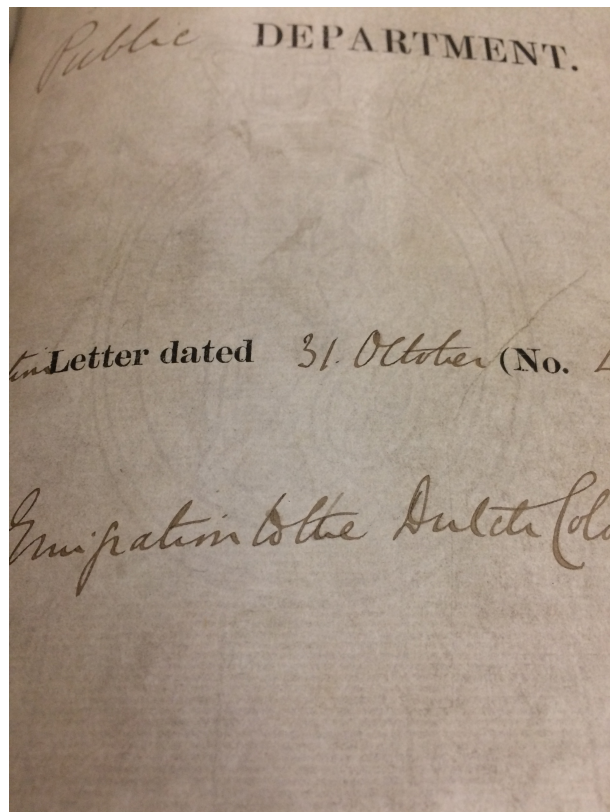 Public DEPARTMENT.
Letter dated 31. October (No.
Emigration to the Dutch Colo